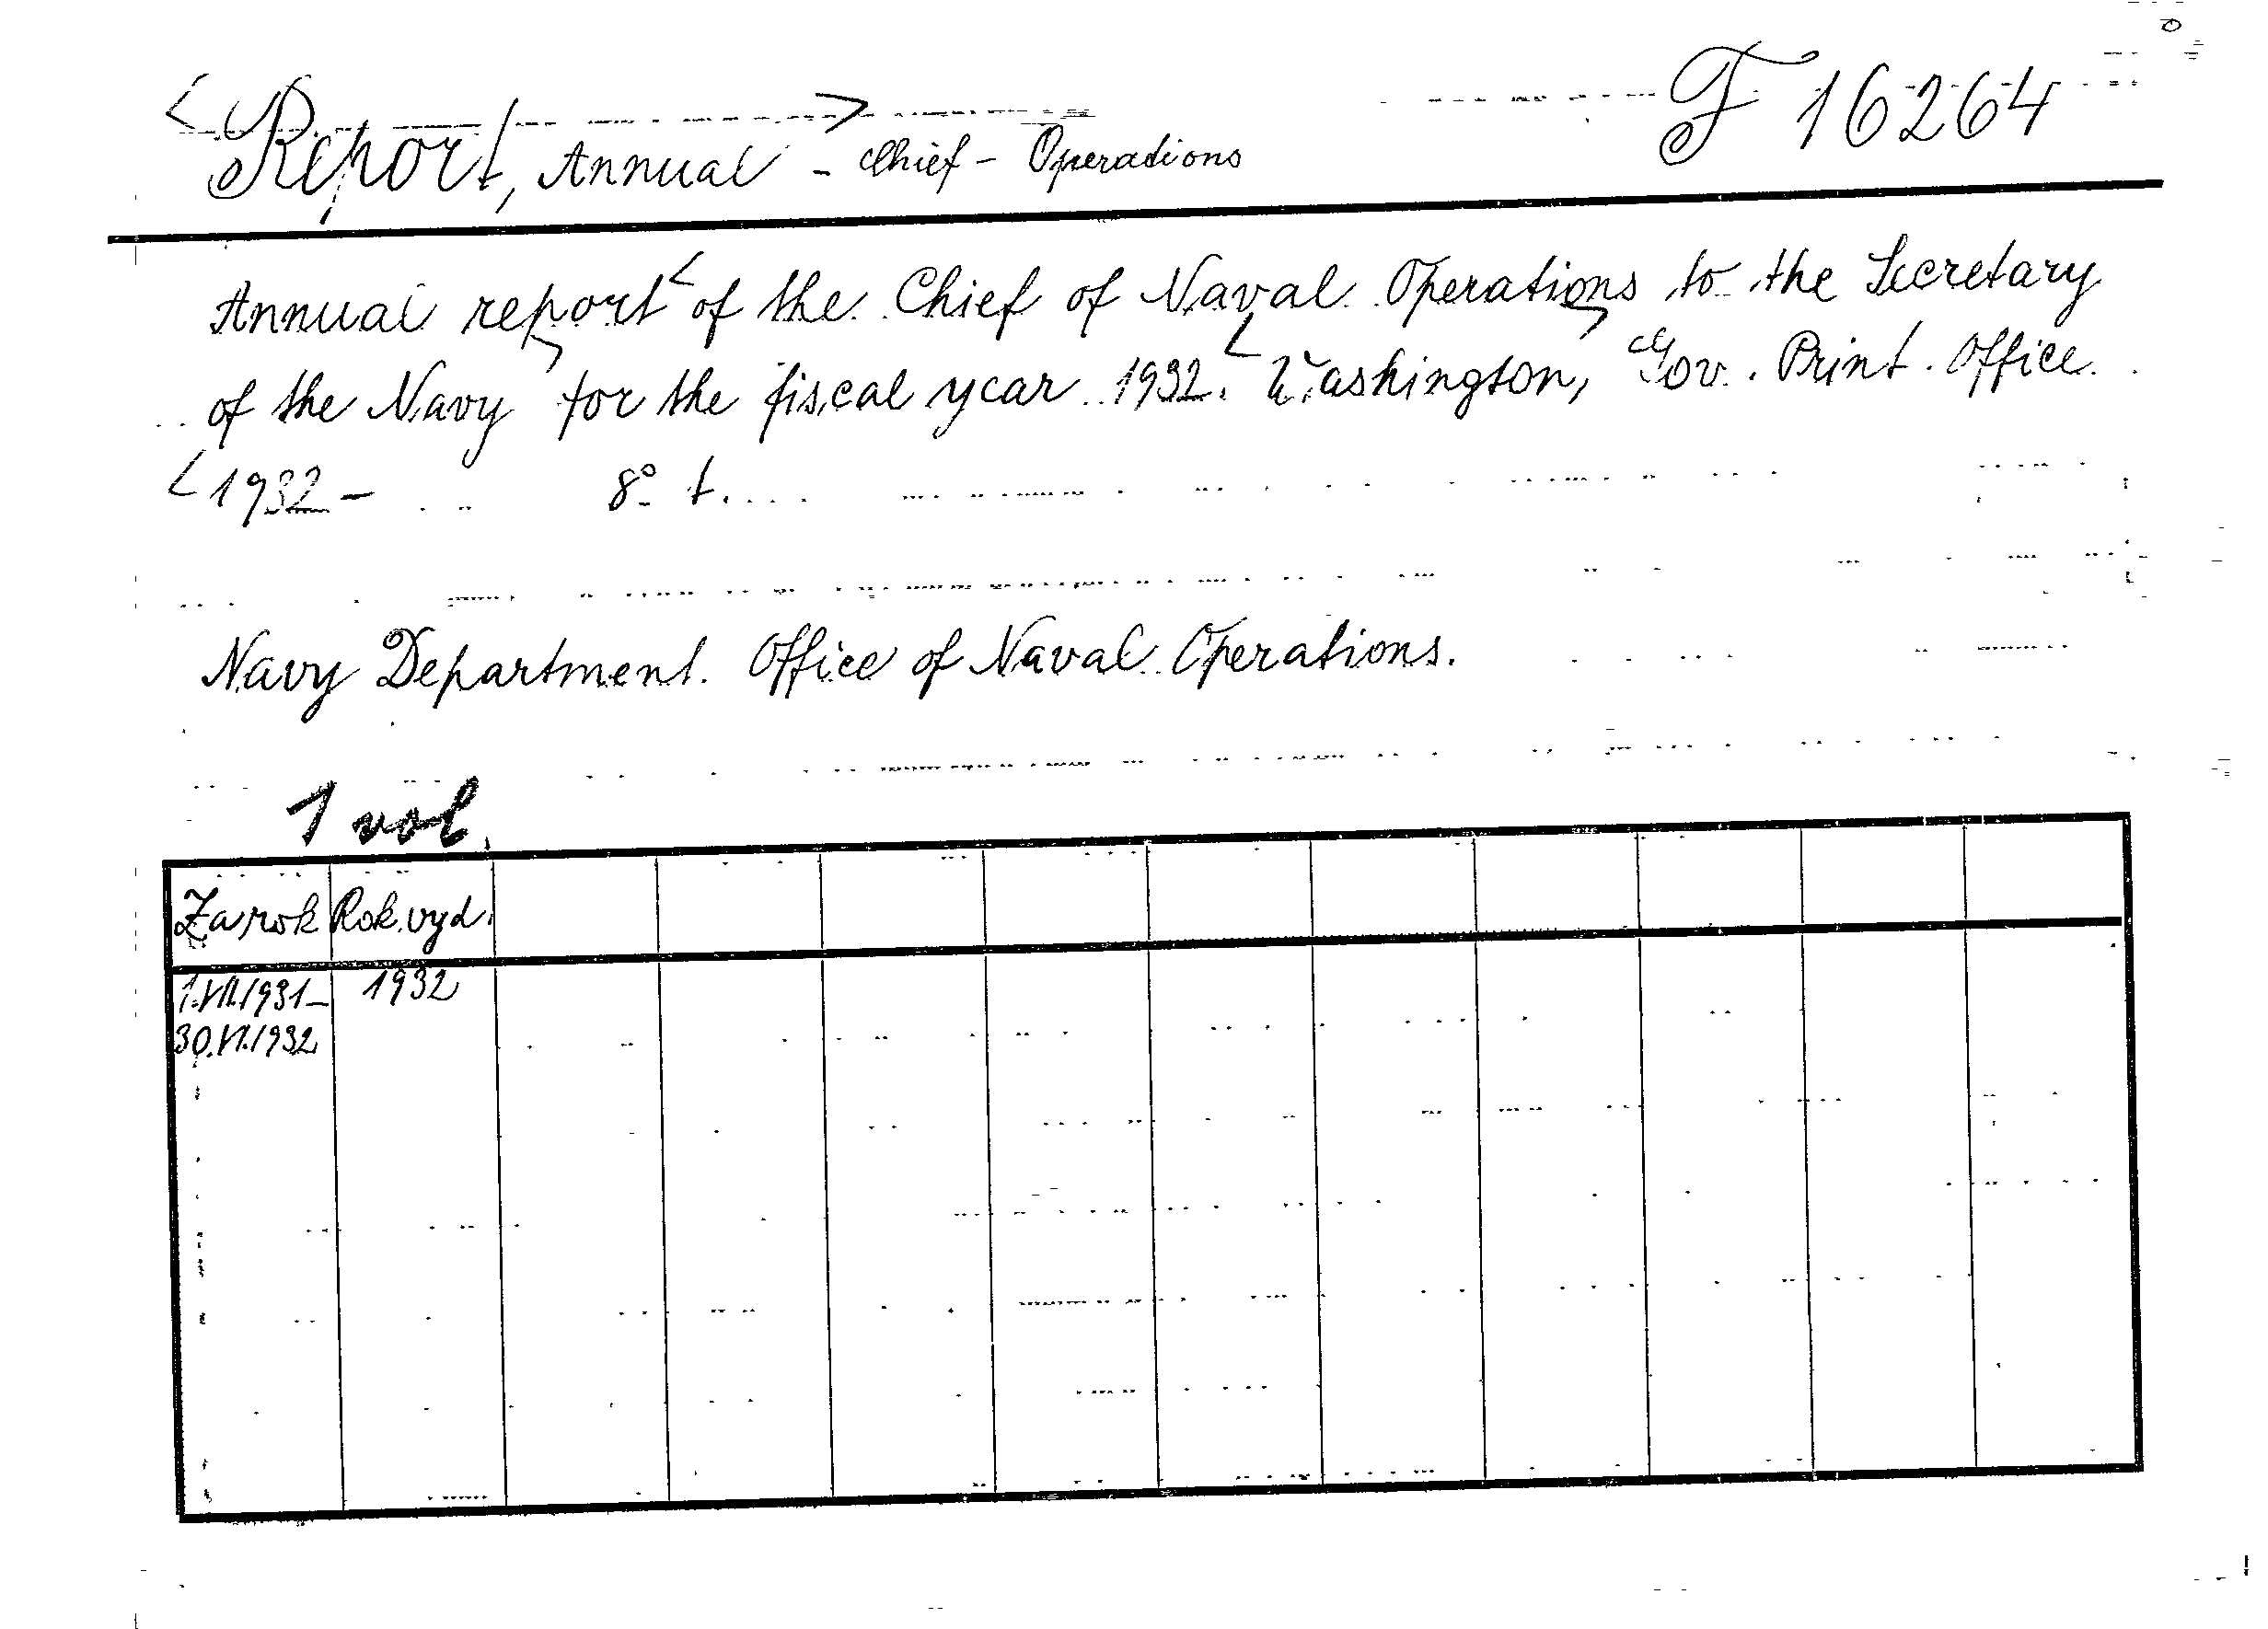 <Report, Annual> - Chief - Operations F 16264
Annual report< of the Chief of Naval Operations> to the Secretary
of the Navy> for the fiscal year 1932.< Washington, Gov. Print. Office.
<1932- 8° t.
Navy Department. Office of Naval Operations.
1 vol.
Za rok Rok vyd.
1.VII.1931- 1932
30.VI.1932